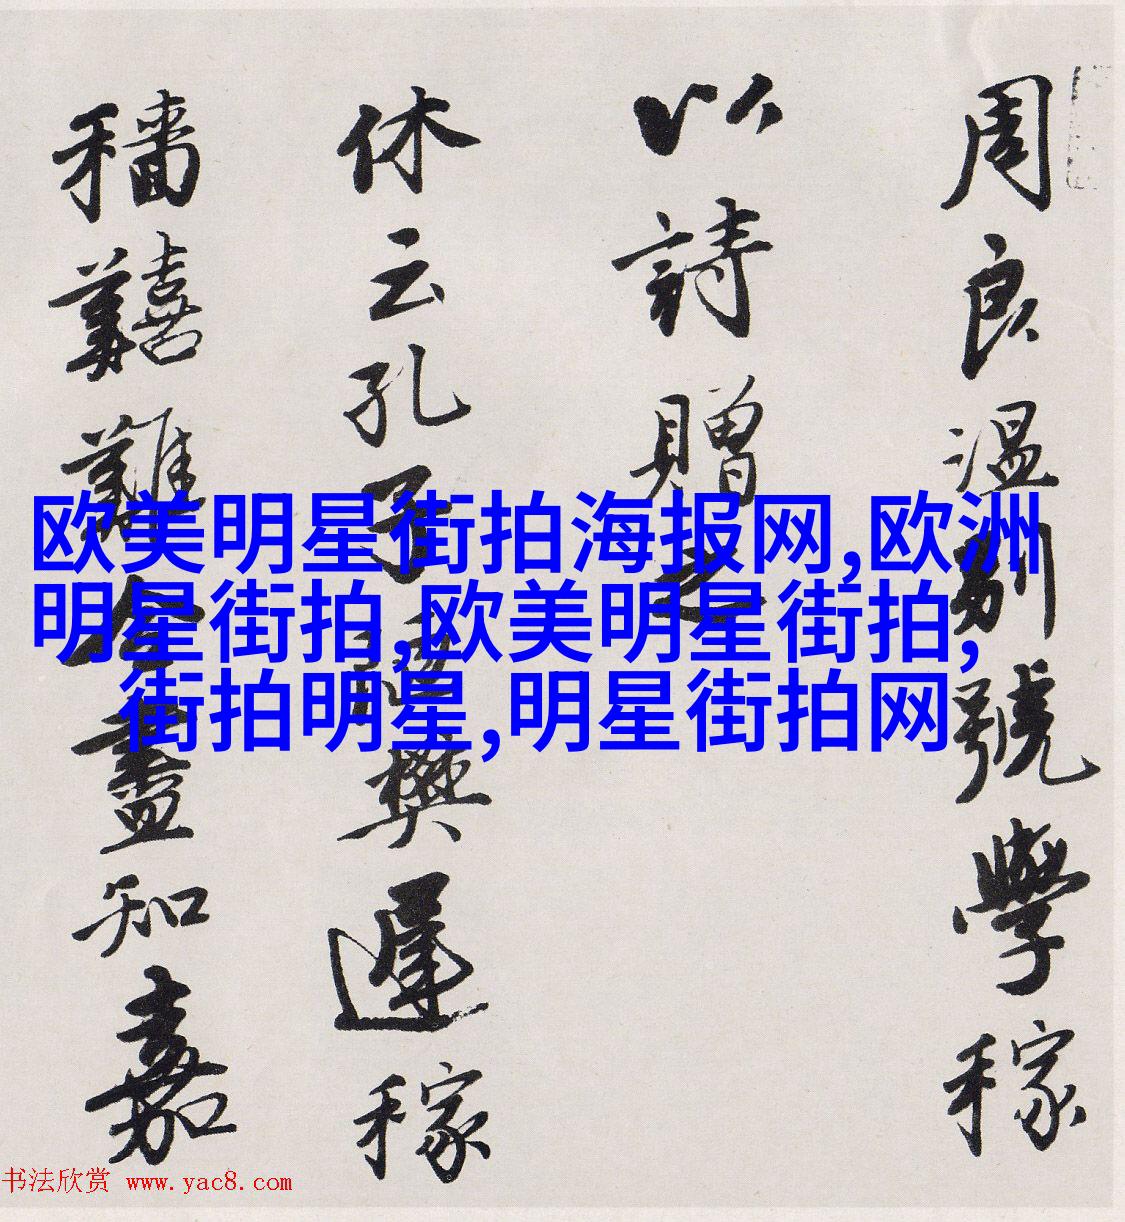 周良温别號學稼
以詩贈之
休云孔子陋樊遲稼
穡囏難今盡知嘉
欧美明星街拍海报网,欧洲
明星街拍,欧美明星街拍,
街拍明星,明星街拍网
书法欣赏 www.yac8.com